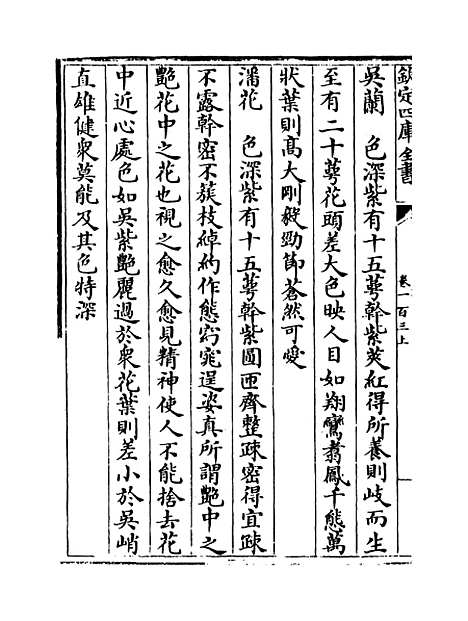 欽定四庫全書
卷一百三上
吳蘭　色深紫有十五萼幹紫莢紅得所養則岐而生
至有二十萼花頭差大色映人目如翔鸞翥鳳千態萬
狀葉則髙大剛毅勁節蒼然可愛
潘花　色深紫有十五萼幹紫圓匝齊整疎密得宜疎
不露幹密不簇枝綽約作態窈窕逞姿真所謂艶中之
艶花中之花也視之愈久愈見精神使人不能捨去花
中近心處色如吳紫艶麗過於衆花葉則差小於吳峭
直雄健衆莫能及其色特深